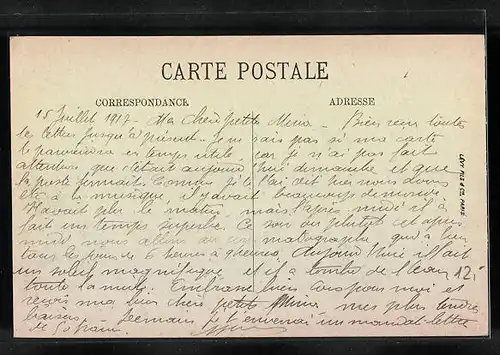 CARTE POSTALE
CORRESPONDANCE
ADRESSE
15 Juillet 1917 - Ma chère petite Mimi - Bien reçu toutes
tes lettres jusqu'à présent - Je ne sais pas si ma carte
te parviendra en temps utile, car je n'ai pas fait
attention que c'était aujourd'hui dimanche et que
la poste fermait. Comme je te l'ai dit hier nous avons
été à la musique, il y avait beaucoup de monde
avait plu le matin, mais l'après midi il a
fait un temps superbe. Ce soir ou plutôt cet après
midi nous allons au cinématographe, qui a lieu
tous les jours de 6 heures à 8 heures. Aujourd'hui il fait
un soleil magnifique et il a tombé de l'eau
toute la nuit. Embrasse bien tous pour moi et
reçois ma bien chère petite Mimi mes plus tendres
baisers - Demain je t'enverrai un mandat-lettre
de 50 francs
12.-
LEVY FILS & CIE, PARIS